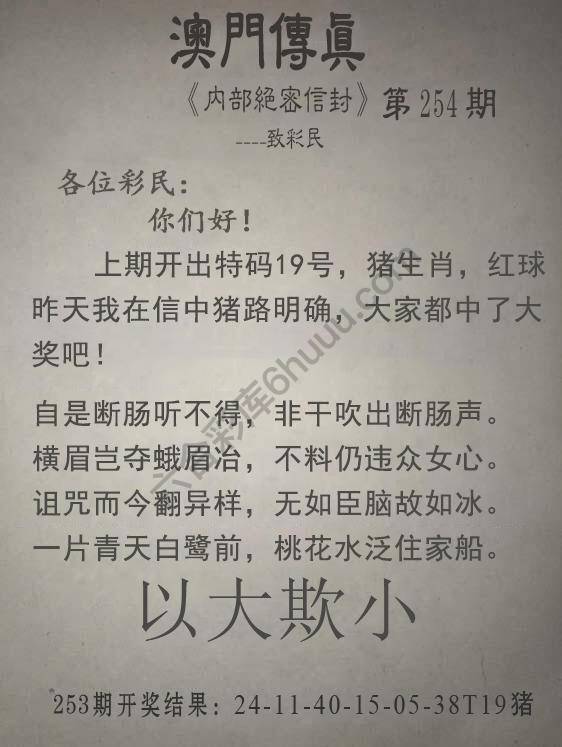 澳門傳真
《内部絕密信封》第254期
----致彩民
各位彩民:
你们好!
上期开出特码19号，猪生肖，红球
昨天我在信中猪路明确，大家都中了大
奖吧!
自是断肠听不得，非干吹出断肠声。
横眉岂夺蛾眉冶，不料仍违众女心。
诅咒而今翻异样，无如臣脑故如冰。
一片青天白鹭前，桃花水泛住家船。
以大欺小
253期开奖结果: 24-11-40-15-05-38T19猪
六合彩库6huuu.com